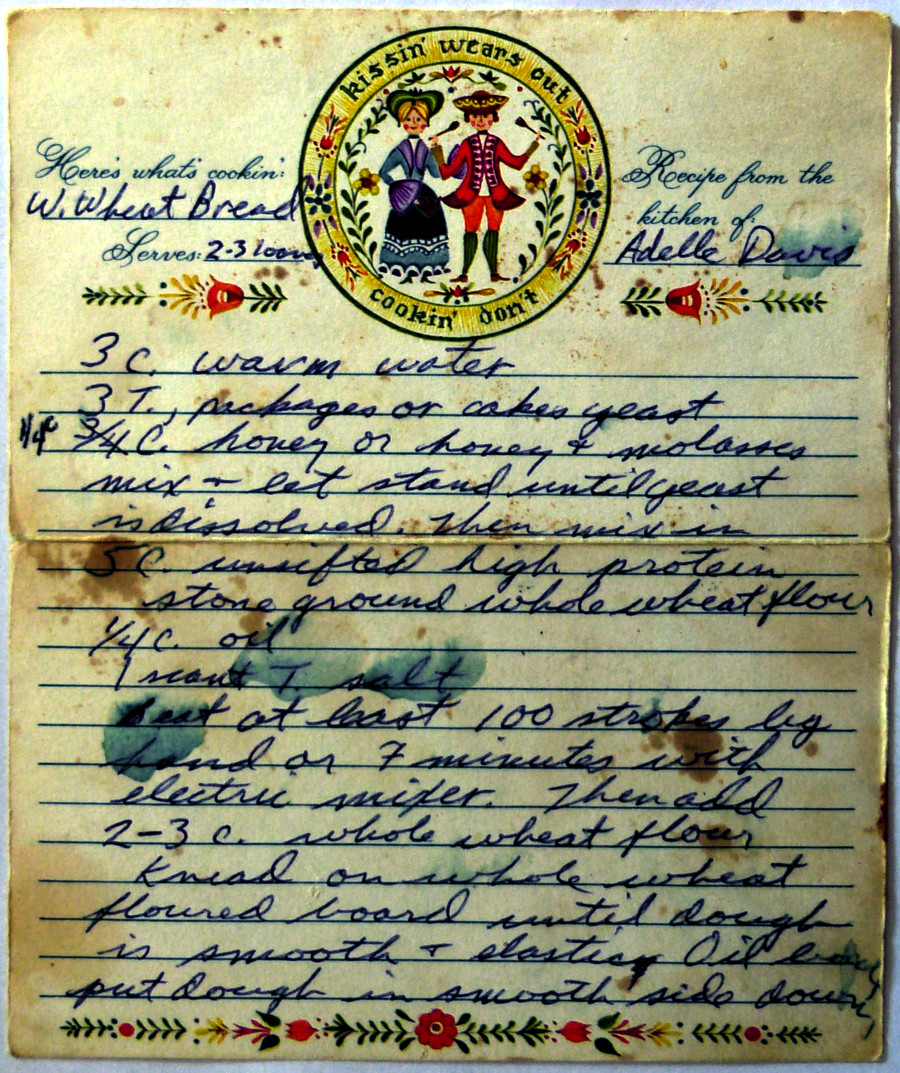 kissin' wears out
cookin' don't
Here's what's cookin':
W. Wheat Bread
Serves: 2-3 loaves
Recipe from the
kitchen of:
Adelle Davis
3 c. warm water
3 T., packages or cakes yeast
1/4 c 3/4 C. honey or honey & molasses
mix & let stand until yeast
is dissolved. Then mix in
5 C. unsifted high protein
stone ground whole wheat flour
1/4 c. oil
1 T. salt
Beat at least 100 strokes by
hand or 7 minutes with
electric mixer. Then add
2-3 c. whole wheat flour
Knead on whole wheat
floured board until dough
is smooth & elastic, Oil bowl,
put dough in smooth side down,